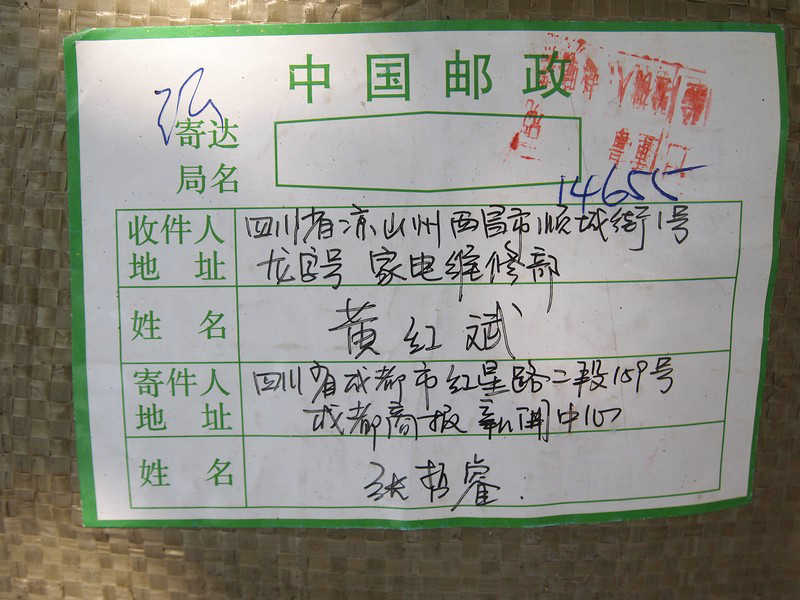 中国邮政
寄达
局名
14655
收件人
地址
四川省凉山州西昌市顺城街1号
龙字号 家电维修部
姓名
黄红斌
寄件人
地址
四川省成都市红星路二段159号
成都商报新闻中心
姓名
张哲睿.